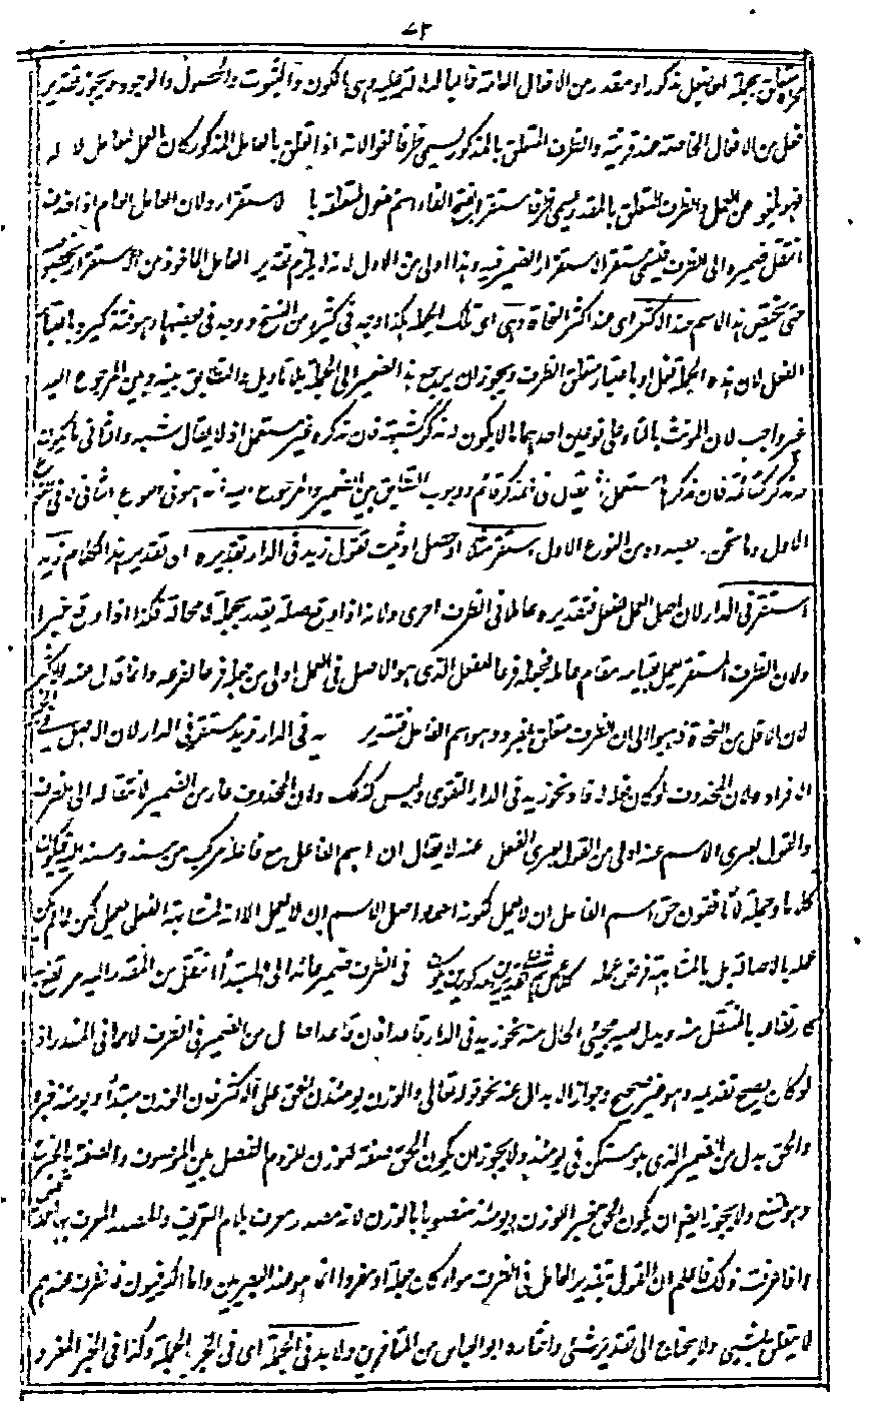 ٧٢
متعلق بجملة او بفعل مذكور او مقدر من الافعال العامة وهى الكون والثبوت والحصول والوجود ويجوز تقدير
فعل من الافعال الخاصة عند قرينة والظرف المتعلق بالمذكور يسمى ظرفا لغوا لانه اذا تعلق بالعامل المذكور كان العمل للعامل لا له
فهو لغو عن العمل والظرف المتعلق بالمقدر يسمى ظرفا مستقرا بفتح القاف اسم مفعول لتعلقه با لاستقرار ولان العامل العام اذا حذف
انتقل ضميره الى الظرف فيسمى مستقرا لاستقرار الضمير فيه وهذا اولى من الاول لانه لا يلزم تقدير العامل الماخوذ من الاستقرار
حتى يختص بهذا الاسم عند الاكثر اى عند اكثر النحاة وهى اى تلك الجملة هكذا وجد فى كثير من النسخ ووجد فى بعضها وهو فتذكيره باعتبار
الفعل لان هذه الجملة فعل او باعتبار متعلق الظرف ويجوز ان يرجع هذا الضمير الى الجملة بلا تاويل والتطابق بينه وبين المرجوع اليه
غير واجب لان المؤنث بالتاء على نوعين احدهما ما لا يكون له مذكر كشبة فان مذكره غير مستعمل اذ لا يقال شب والثانى ما يكون
له مذكر كقائمة فان مذكرها مستعمل اذ يقال فى مذكره قائم ووجوب التطابق بين الضمير والمرجوع اليه انما هو فى النوع الثانى لا فى النوع
الاول وما نحن بصدده من النوع الاول استقر مثلا او حصل او ثبت تقول زيد فى الدار تقديره اى تقدير هذا الكلام زيد
استقر فى الدار لان اصل العمل للفعل فتقديره عاملا فى الظرف احرى ولانه اذا وقع صلة يقدر بجملة لا محالة فكذا اذا وقع خبرا
ولان الظرف المستقر يعمل لقيامه مقام عامله فجعله فرعا للفعل الذى هو الاصل فى العمل اولى من جعله فرعا لفرعه وانما قال عند الاكثر
لان الاقل من النحاة ذهبوا الى ان الظرف متعلق بمفرد وهو اسم الفاعل فتقدير زيد فى الدار زيد مستقر فى الدار لان الاصل فى الخبر
الافراد ولان المحذوف لو كان فعلا لافاد نحو زيد فى الدار التقوى وليس كذلك ولان المحذوف عار من الضمير لانتقاله الى الظرف
والقول بعرى الاسم عنه اولى من القول بعرى الفعل عنه لا يقال ان اسم الفاعل مع فاعله مركب من مسند ومسند اليه فيكون
كلاما وجملة لانا نقول حق اسم الفاعل ان لا يعمل لكونه اسما واصل الاسم ان لا يعمل الا انه لمشابهة الفعل يعمل لكن لما لم يكن
عمله بالاصالة بل بالمشابهة فرض عمله كلا عمل فى الظرف ضمير عائد الى المبتدأ انتقل من المقدر اليه مرتفع به
كارتفاعه بالمنتقل منه ويدل عليه مجيئ الحال منه نحو زيد فى الدار قاعدا فان قاعدا حال من الضمير فى الظرف لا مما فى المقدر اذ
لو كان يصح تقديمه وهو غير صحيح وجواز الابدال عنه نحو قوله تعالى والوزن يومئذن الحق على الاكثر فان الوزن مبتدأ ويومئذ خبره
والحق بدل من الضمير الذى هو مستكن فى يومئذ ولا يجوز ان يكون الحق صفة للوزن للزوم الفصل بين الموصوف والصفة بالخبر
وهو ممتنع ولا يجوز ايضا ان يكون الحق خبر الوزن ويومئذ منصوبا بالوزن لانه مصدر معرف بلام التعريف والمصدر المعرف بها
واذا عرفت ذلك فاعلم ان القول بتقدير العامل فى الظرف سواء كان جملة او مفردا انما هو عند البصريين واما الكوفيون فالظرف عندهم
لا يتعلق بشيئ ولا يحتاج الى تقدير شئ واختاره ابو العباس من المتأخرين ولا بد فى الجملة اى فى الخبر الجملة وكذا فى الخبر المفرد